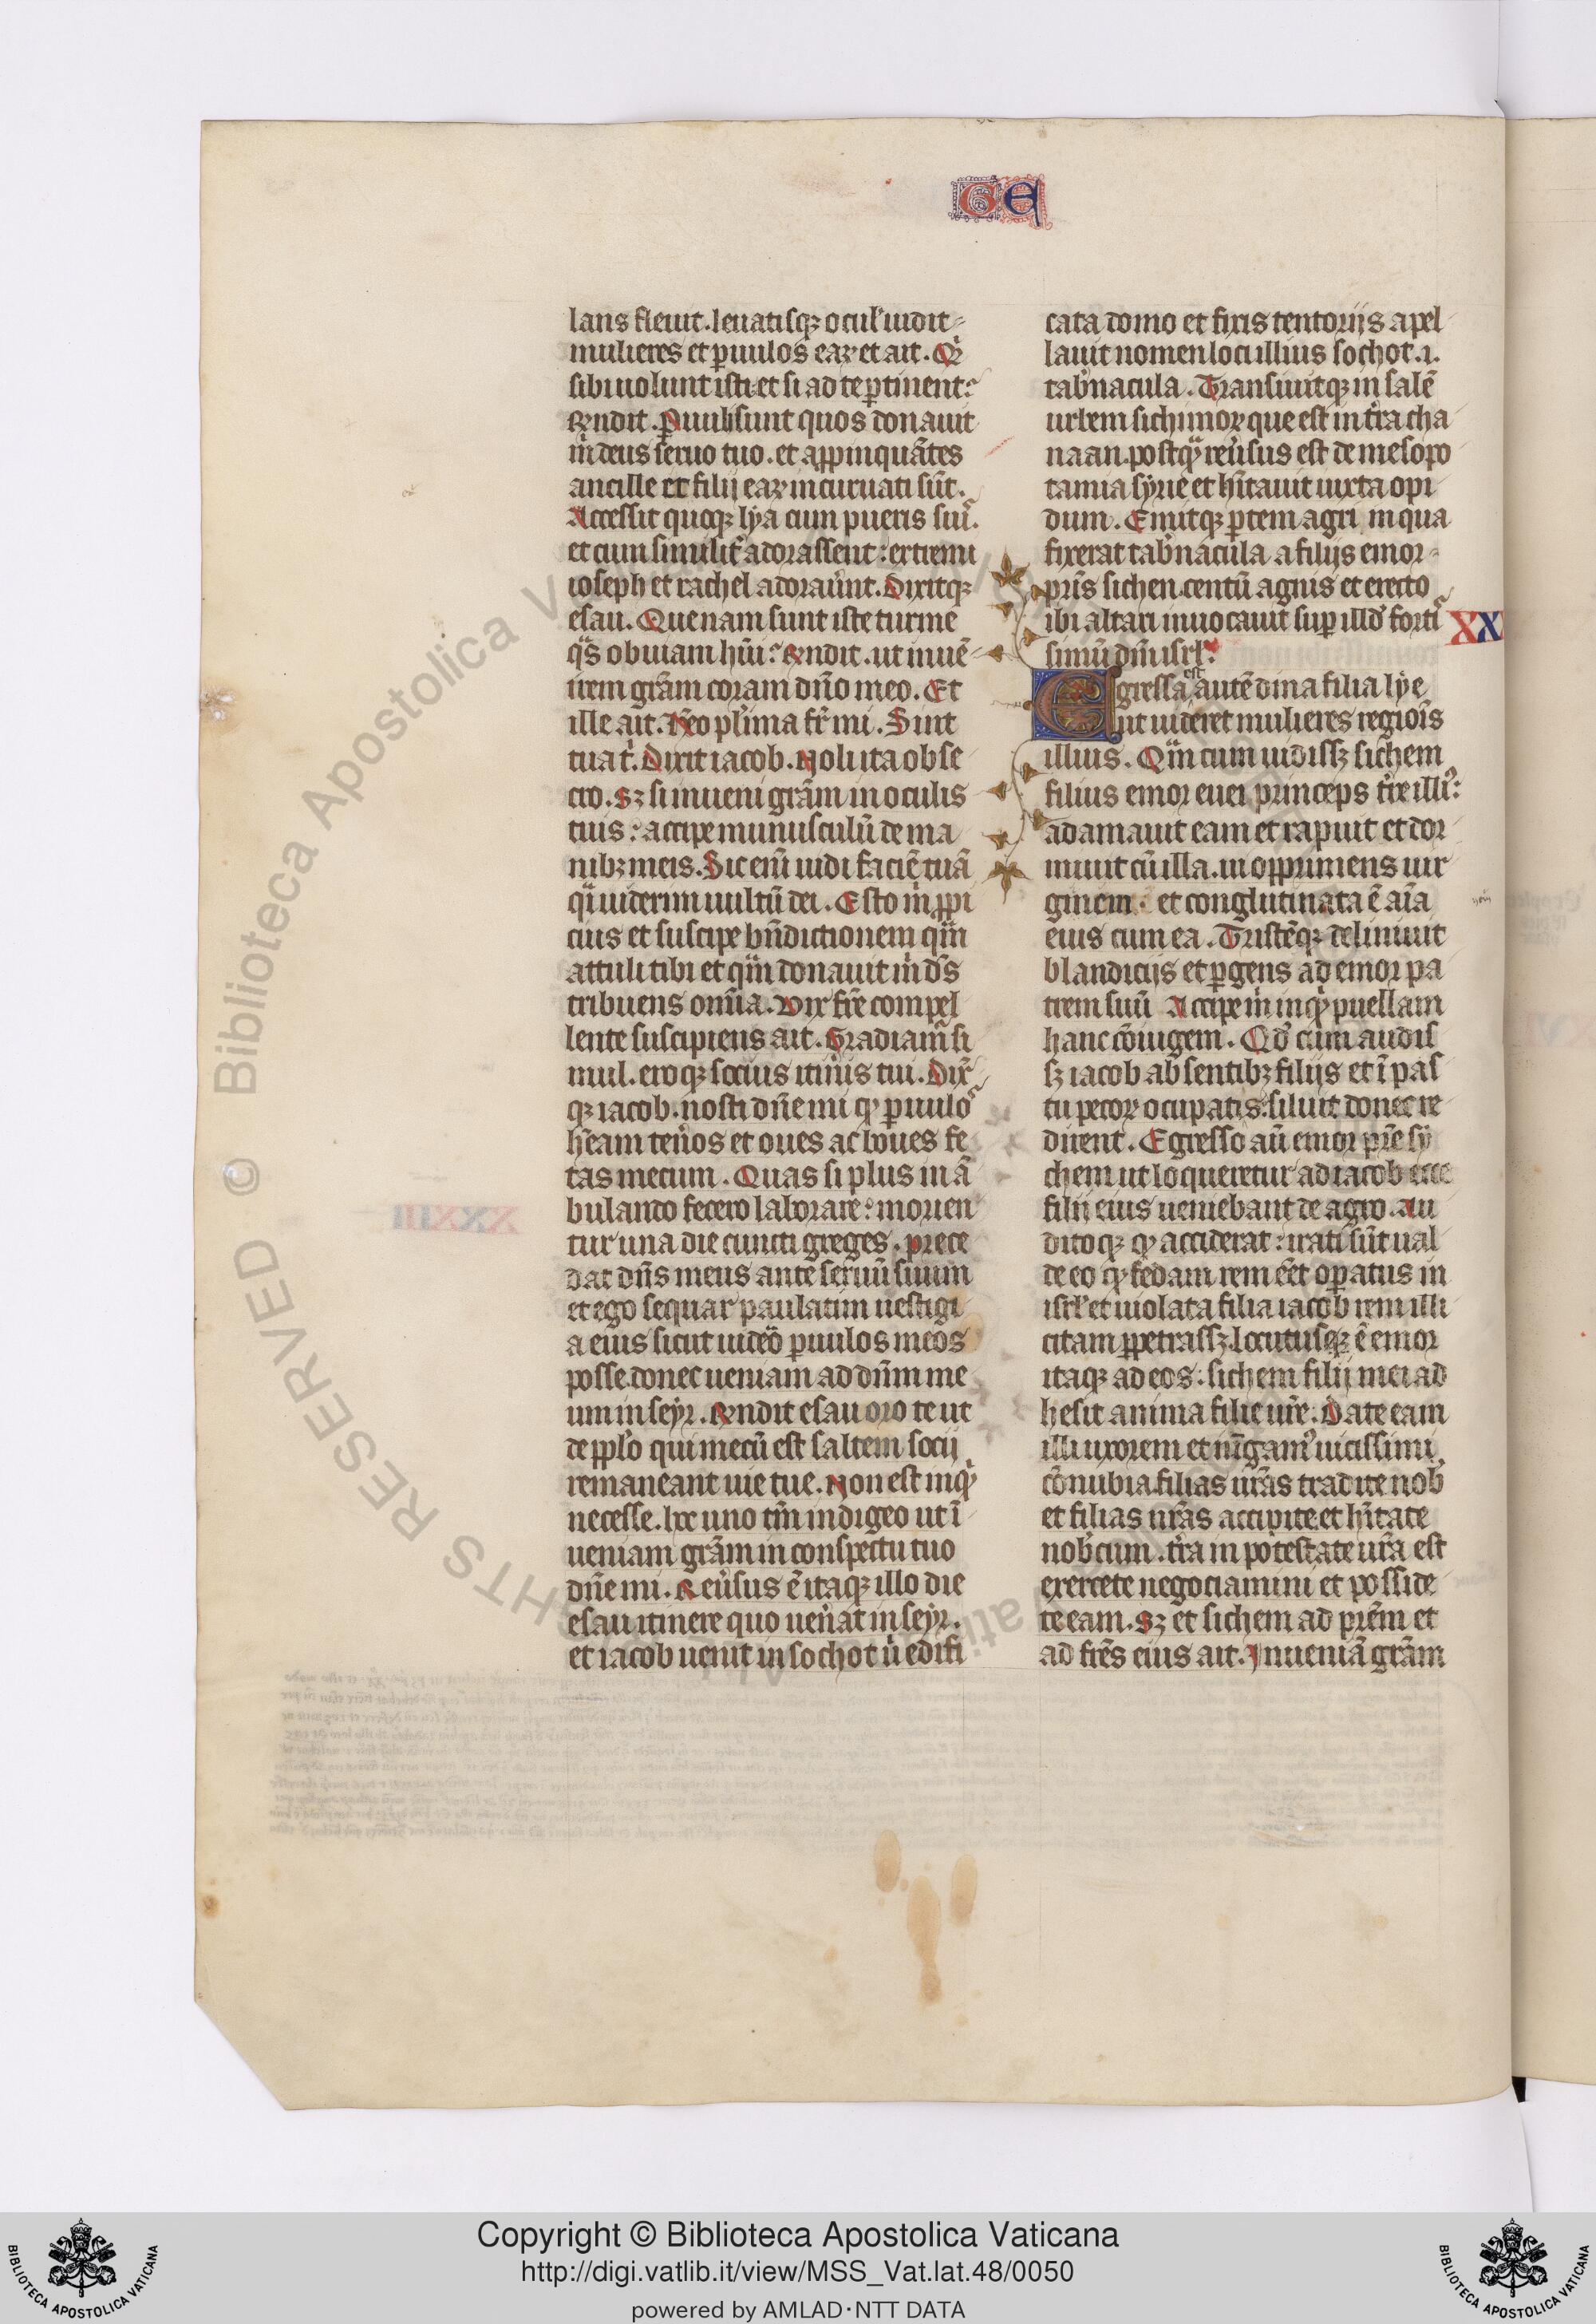 GE
lans fleuit. leuatisqz ocul' uidit
mulieres et puulos eaꝝ et ait. Qͥd
sibi uolunt isti et si ad te ptinent?
Rn̄dit. Puuli sunt quos donauit
m̄ deus seruo tuo. et appinquātes
ancille et filij eaꝝ incuruati sūt.
Accessit quoqz lya cum pueris suis.
et cum similit̄ adorassent: extremi
ioseph et rachel adorauer̄nt. Dixitqz
esau. Quenam sunt iste turme
qͣs obuiam hūi? Rn̄dit. ut inuē
irem grām coram dn̄o meo. Et
ille ait. Hēo pl'ima fr̄ mi. Sint
tua t'. Dixit iacob. Noli ita obse
cro. Sz si inueni grām in oculis
tuis: accipe munusculū de ma
nibz meis. Sic enī uidi faciē tuā
qͣi uiderim uultū dei. Esto m̄ ppi
cius et suscipe bn̄dictionem qͣm
attuli tibi et qͣm donauit m̄ d's
tribuens om̄ia. Vix fr̄e compel
lente suscipiens ait. Gradiam̄ si
mul. eroqz socius itin̄is tui. Dix̄
qz iacob. nosti dn̄e mi qꝫ puulos
hēam ten̄os et oues ac boues fe
tas mecum. Quas si plus in ā
bulando fecero laborare: morien
tur una die cuncti greges. prece
dat dn̄s meus ante seruū suum
et ego sequar paulatim uestigi
a eius sicut uideo puulos meos
posse. donec ueniam ad dn̄m me
um in seyr. Rn̄dit esau oro te ut
de pplo qui mecū est saltem socij
remaneant uie tue. Non est inqͥt
necesse. hoc uno tm̄ indigeo ut ī
ueniam grām in conspectu tuo
dn̄e mi. Reuer̄sus ē itaqz illo die
esau itinere quo uen̄at in seyr.
et iacob uenit in sochot u̇ edifi
cata domo et fixis tentorijs apel
lauit nomen loci illius sochot .i.
tab̄nacula. Transiuitqz in salē
urbem sichimoꝝ que est in tr̄a cha
naan. postqͣ reuer̄sus est de mesopo
tamia syrie et hītauit iuxta opi
dum. Emitqz ptem agri in qua
fixerat tab̄nacula a filijs emor
pr̄is sichen. centū agnis et erecto
ibi altari inuocauit sup illd' forti
simū dm̄ isrl'.
XX
Egressa est autē dina filia lye
ut uideret mulieres regiois
illius. Qͣm cum uidissz sichem
filius emor euei princeps tr̄e illi':
adamauit eam et rapuit et dor
miuit cū illa. ui opprimens uir
ginem. et conglutinata ē aīa
eius cum ea. Tristēqz deliniuit
blandicijs et pgens ad emor pa
trem suū Accipe m̄ inqͥt puellam
hanc cōiugem. Qd' cum audis
sz iacob absentibz filijs et ī pas
tu pecoꝝ ocupatis: siluit donec re
dirent. Egresso aū emor pr̄e sy
chem ut loqueretur ad iacob ecce
filij eius ueniebant de agro. Au
ditoqz qꝫ acciderat: irati sūt ual
de eo qꝫ fedam rem eēt opatus in
isrl' et uiolata filia iacob rem illi
citam ppetrassz. Locutusqz ē emor
itaqz ad eos: sichem filij mei ad
hesit anima filie ur̄e. Date eam
illi uxorem et iūgam' uicissim
cōnubia. filias ur̄as tradite nob'
et filias nr̄as accipite et hītate
nob'cum. tr̄a in potestate ur̄a est
exercete negociamini et posside
te eam. Sz et sichem ad pr̄em et
ad fr̄es eius ait. Inueniā grām
Copyright © Biblioteca Apostolica Vaticana
http://digi.vatlib.it/view/MSS_Vat.lat.48/0050
powered by AMLAD·NTT DATA
BIBLIOTECA APOSTOLICA VATICANA
BIBLIOTECA APOSTOLICA VATICANA